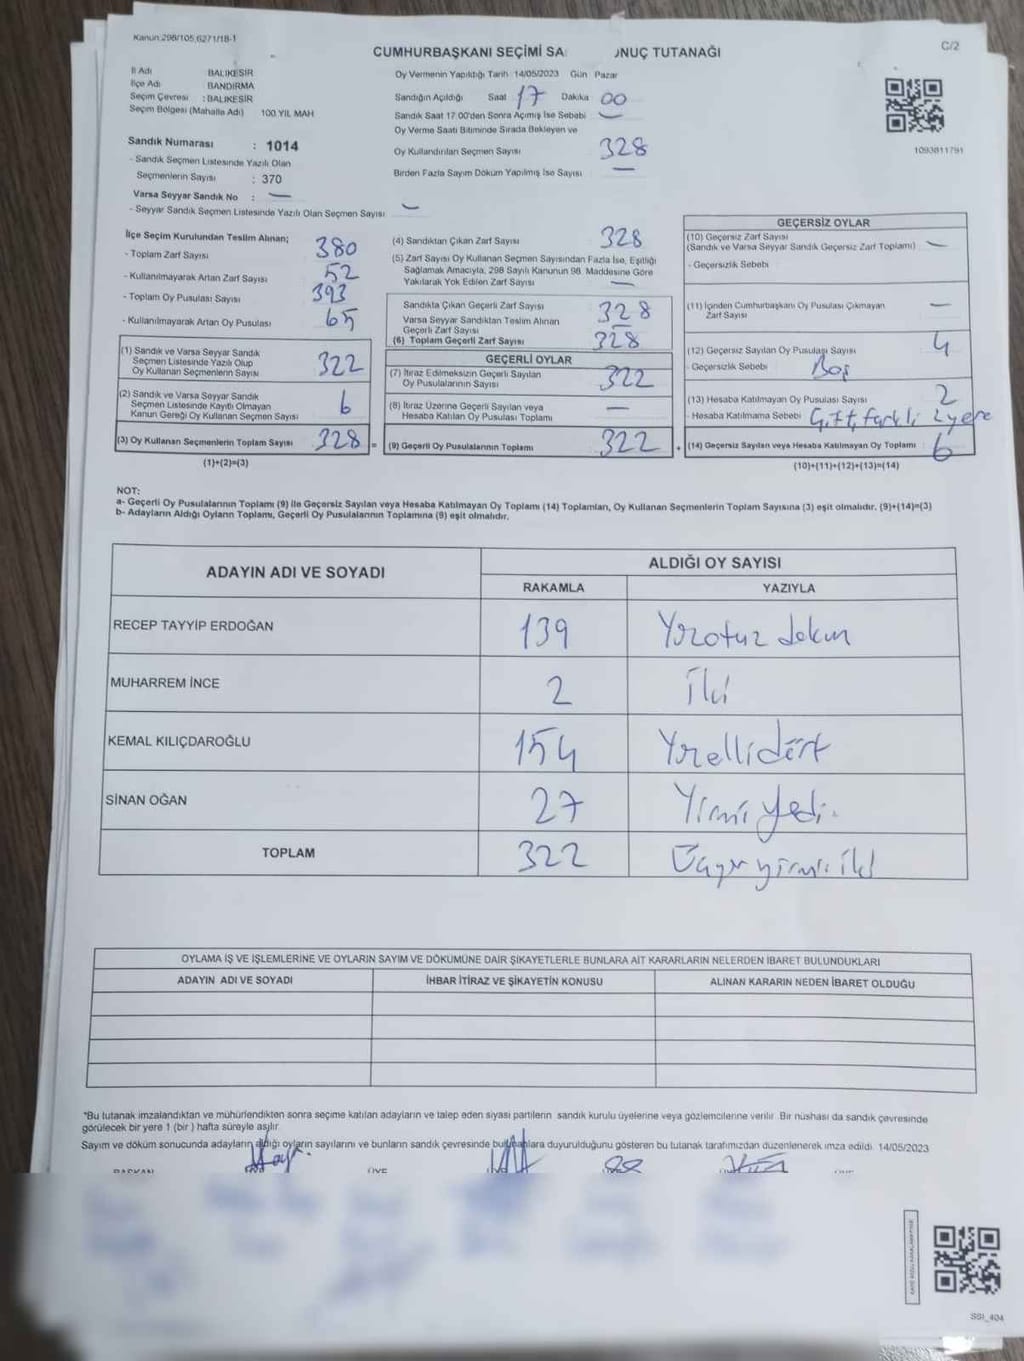 Kanun 298/105,6271/18-1
C/2
CUMHURBAŞKANI SEÇİMİ SA ONUÇ TUTANAĞI
İl Adı BALIKESİR
İlçe Adı BANDIRMA
Seçim Çevresi : BALIKESİR
Seçim Bölgesi (Mahalle Adı) 100.YIL MAH
Oy Vermenin Yapıldığı Tarih 14/05/2023 Gün Pazar
Sandığın Açıldığı Saat 17 Dakika 00
Sandık Saat 17:00'den Sonra Açımış İse Sebebi —
Oy Verme Saati Bitiminde Sırada Bekleyen ve
Oy Kullandırılan Seçmen Sayısı 328
Birden Fazla Sayım Döküm Yapılmış İse Sayısı —
1093811791
Sandık Numarası : 1014
- Sandık Seçmen Listesinde Yazılı Olan
Seçmenlerin Sayısı : 370
Varsa Seyyar Sandık No : —
- Seyyar Sandık Seçmen Listesinde Yazılı Olan Seçmen Sayısı —
İlçe Seçim Kurulundan Teslim Alınan;
- Toplam Zarf Sayısı 380
- Kullanılmayarak Artan Zarf Sayısı 52
- Toplam Oy Pusulası Sayısı 393
- Kullanılmayarak Artan Oy Pusulası 65
(1) Sandık ve Varsa Seyyar Sandık
Seçmen Listesinde Yazılı Olup
Oy Kullanan Seçmenlerin Sayısı 322
(2) Sandık ve Varsa Seyyar Sandık
Seçmen Listesinde Kayıtlı Olmayan
Kanun Gereği Oy Kullanan Seçmen Sayısı 6
(3) Oy Kullanan Seçmenlerin Toplam Sayısı 328 =
(1)+(2)=(3)
(4) Sandıktan Çıkan Zarf Sayısı 328
(5) Zarf Sayısı Oy Kullanan Seçmen Sayısından Fazla İse, Eşitliği
Sağlamak Amacıyla, 298 Sayılı Kanunun 98. Maddesine Göre
Yakılarak Yok Edilen Zarf Sayısı —
Sandıkta Çıkan Geçerli Zarf Sayısı 328
Varsa Seyyar Sandıktan Teslim Alınan
Geçerli Zarf Sayısı —
(6) Toplam Geçerli Zarf Sayısı 328
GEÇERLİ OYLAR
(7) İtiraz Edilmeksizin Geçerli Sayılan
Oy Pusulalarının Sayısı 322
(8) İtiraz Üzerine Geçerli Sayılan veya
Hesaba Katılan Oy Pusulası Toplamı —
(9) Geçerli Oy Pusulalarının Toplamı 322 +
GEÇERSİZ OYLAR
(10) Geçersiz Zarf Sayısı
(Sandık ve Varsa Seyyar Sandık Geçersiz Zarf Toplamı) —
- Geçersizlik Sebebi
(11) İçinden Cumhurbaşkanı Oy Pusulası Çıkmayan
Zarf Sayısı —
(12) Geçersiz Sayılan Oy Pusulası Sayısı 4
- Geçersizlik Sebebi Boş
(13) Hesaba Katılmayan Oy Pusulası Sayısı 2
- Hesaba Katılmama Sebebi Çift, farklı 2 yere
(14) Geçersiz Sayılan veya Hesaba Katılmayan Oy Toplamı 6
(10)+(11)+(12)+(13)=(14)
NOT:
a- Geçerli Oy Pusulalarının Toplamı (9) ile Geçersiz Sayılan veya Hesaba Katılmayan Oy Toplamı (14) Toplamları, Oy Kullanan Seçmenlerin Toplam Sayısına (3) eşit olmalıdır. (9)+(14)=(3)
b- Adayların Aldığı Oyların Toplamı, Geçerli Oy Pusulalarının Toplamına (9) eşit olmalıdır.
ADAYIN ADI VE SOYADI
ALDIĞI OY SAYISI
RAKAMLA YAZIYLA
RECEP TAYYİP ERDOĞAN 139 Yüzotuz dokuz
MUHARREM İNCE 2 İki
KEMAL KILIÇDAROĞLU 154 Yüzellidört
SİNAN OĞAN 27 Yirmi yedi.
TOPLAM 322 Üçyüz yirmi iki
OYLAMA İŞ VE İŞLEMLERİNE VE OYLARIN SAYIM VE DÖKÜMÜNE DAİR ŞİKAYETLERLE BUNLARA AİT KARARLARIN NELERDEN İBARET BULUNDUKLARI
ADAYIN ADI VE SOYADI İHBAR İTİRAZ VE ŞİKAYETİN KONUSU ALINAN KARARIN NEDEN İBARET OLDUĞU
*Bu tutanak imzalandıktan ve mühürlendikten sonra seçime katılan adayların ve talep eden siyasi partilerin sandık kurulu üyelerine veya gözlemcilerine verilir. Bir nüshası da sandık çevresinde
görülecek bir yere 1 (bir) hafta süreyle asılır.
Sayım ve döküm sonucunda adayların aldığı oyların sayılarını ve bunların sandık çevresinde bulunanlara duyurulduğunu gösteren bu tutanak tarafımızdan düzenlenerek imza edildi. 14/05/2023
BAŞKAN ÜYE
SSI_404